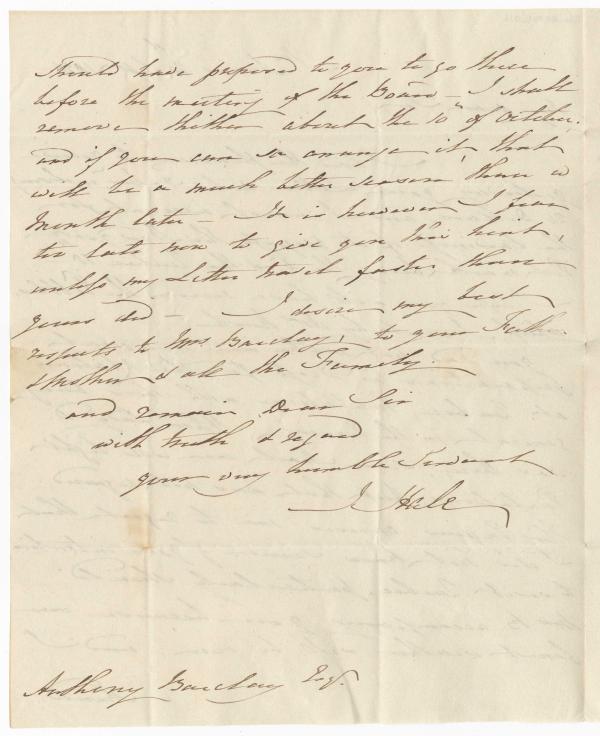 should have proposed to you to go there
before the meeting of the Board - I shall
remove thither about the 10th of October,
and if you can so arrange it, that
will be a much better season, than a
Month later - It is however I fear
too late now to give you this hint,
unless my Letter travel faster than
yours did - I desire my best
respects to Mrs Barclay, to your Father
& Mother & all the Family
and remain Dear Sir
with truth & regard
your very humble Servant
J Hale
Anthony Barclay Esqr.